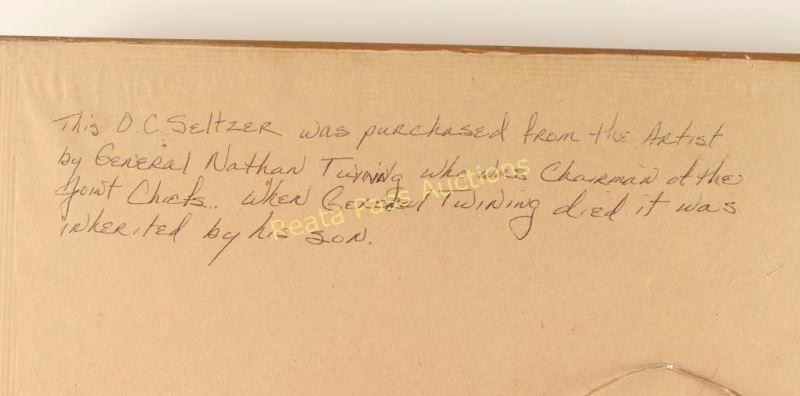 This O.C. Seltzer was purchased from the Artist
by General Nathan Twining who was Chairman of the
Joint Chiefs.. When General Twining died it was
inherited by his son.
Reata Pass Auctions